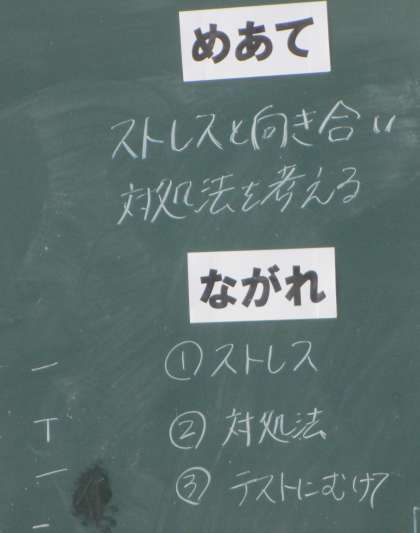 めあて
ストレスと向き合い
対処法を考える
ながれ
①ストレス
②対処法
③テストにむけて